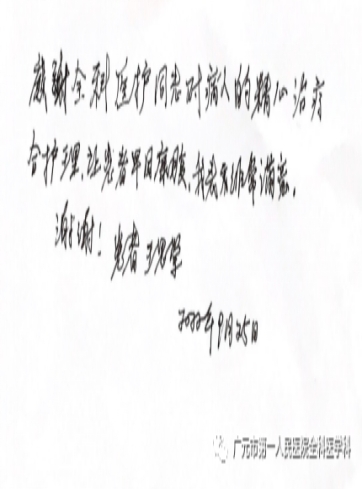 感谢全科医护同志对病人的精心治疗
合护理,让患者早日康复,我表示非常满意。
谢谢! 患者 王
2022年9月25日
广元市第一人民医院全科医学科